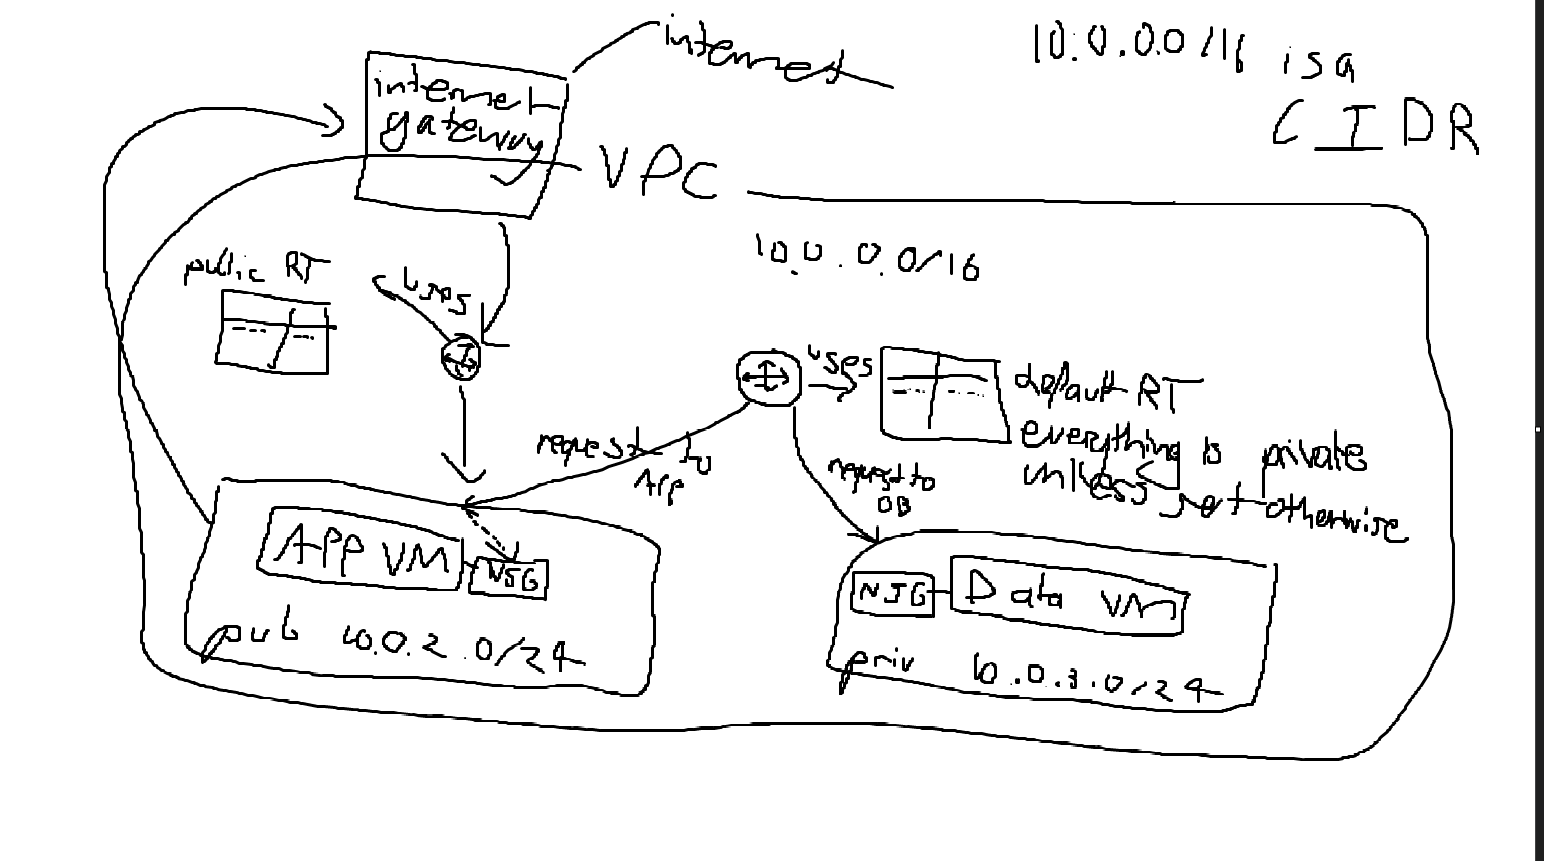 internet
10.0.0.0/16 is a
CIDR
internet
gateway
VPC
10.0.0.0/16
public RT
uses
uses
default RT
everything is private
unless set otherwise
request to
App
request to
DB
APP VM
NSG
pub 10.0.2.0/24
NSG
Data VM
priv 10.0.3.0/24